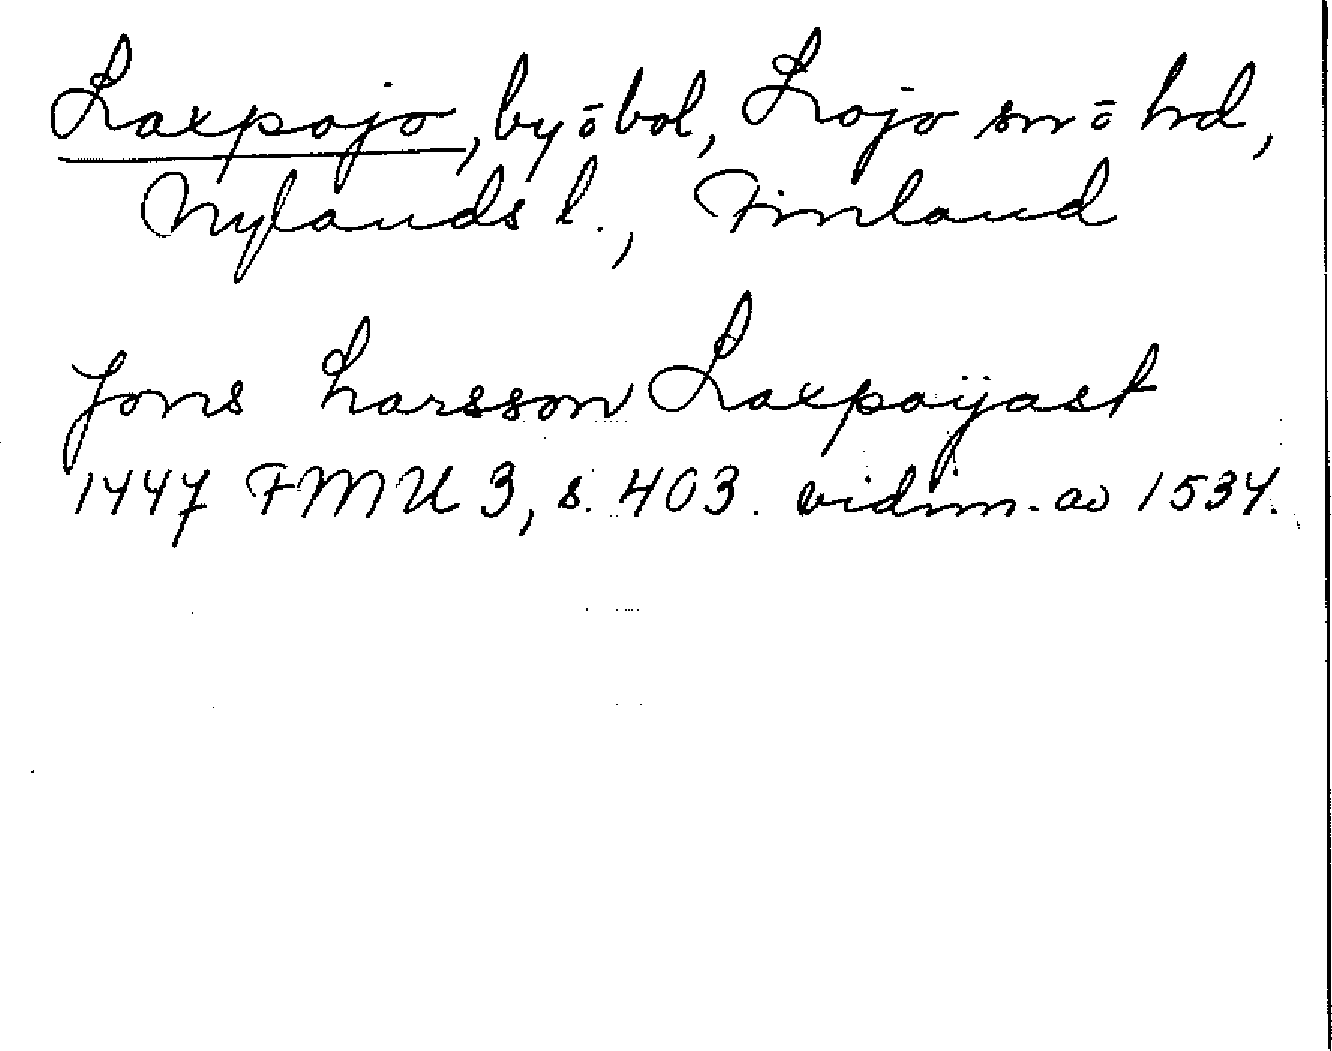 Laxpojo, by o bol, Lojo sn o hd,
Nylands l., Finland
Jons Larsson Laxpoyast
1447 FMU 3, s. 403. vidim. av 1534.